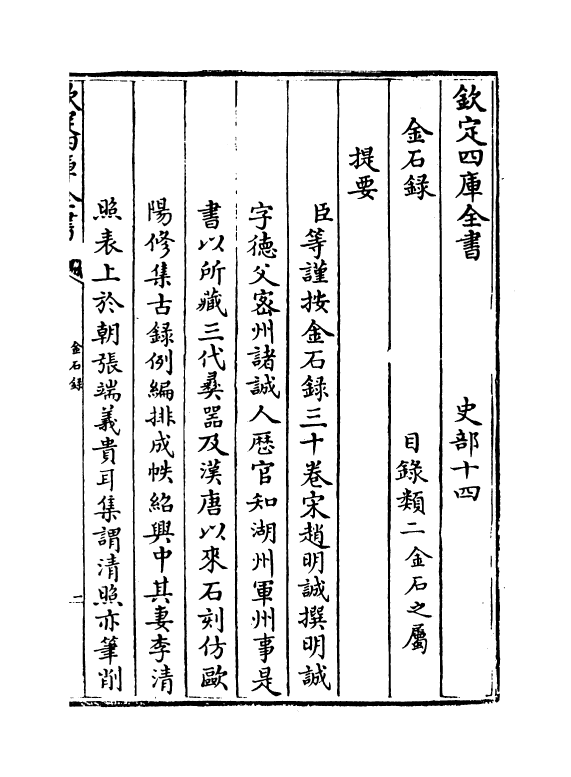 欽定四庫全書　史部十四
金石録　目錄類二金石之屬
提要
臣等謹按金石録三十卷宋趙明誠撰明誠
字德父宻州諸誠人厯官知湖州軍州事是
書以所藏三代彞器及漢唐以來石刻仿歐
陽修集古録例編排成帙紹興中其妻李清
照表上於朝張端義貴耳集謂清照亦筆削
欽定四庫全書
金石録